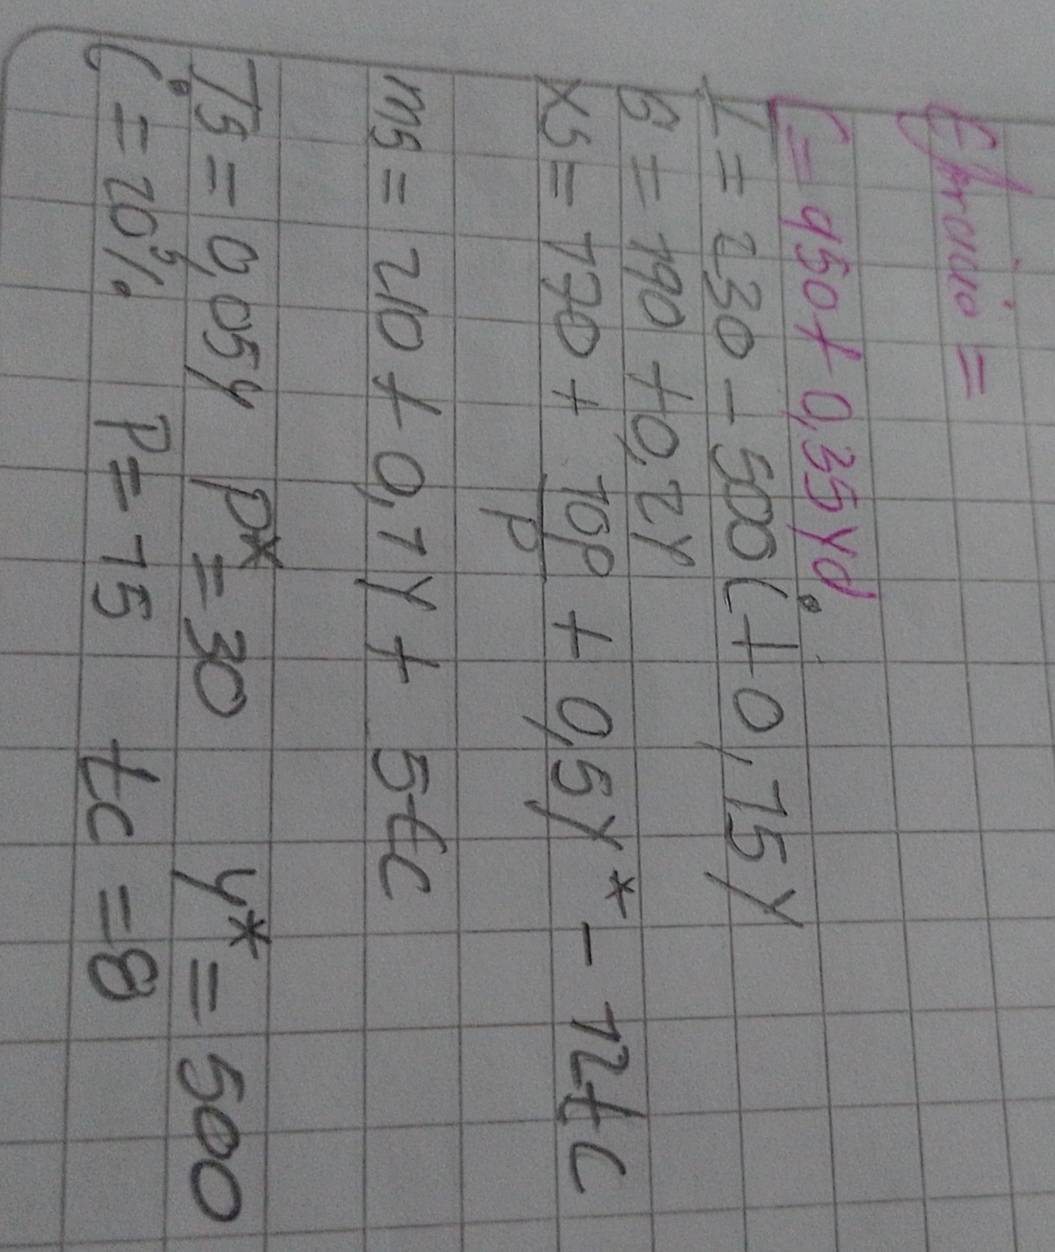 C = 450 + 0,35yd
I = 230 - 500i + 0,15y
G = 190 + 0,2y
Xs = 170 + 10p/p + 0,5y* - 12tc
ms = 210 + 0,1y + 5tc
Ts = 0,05y p* = 30 y* = 500
i = 20% P = 15 tc = 8